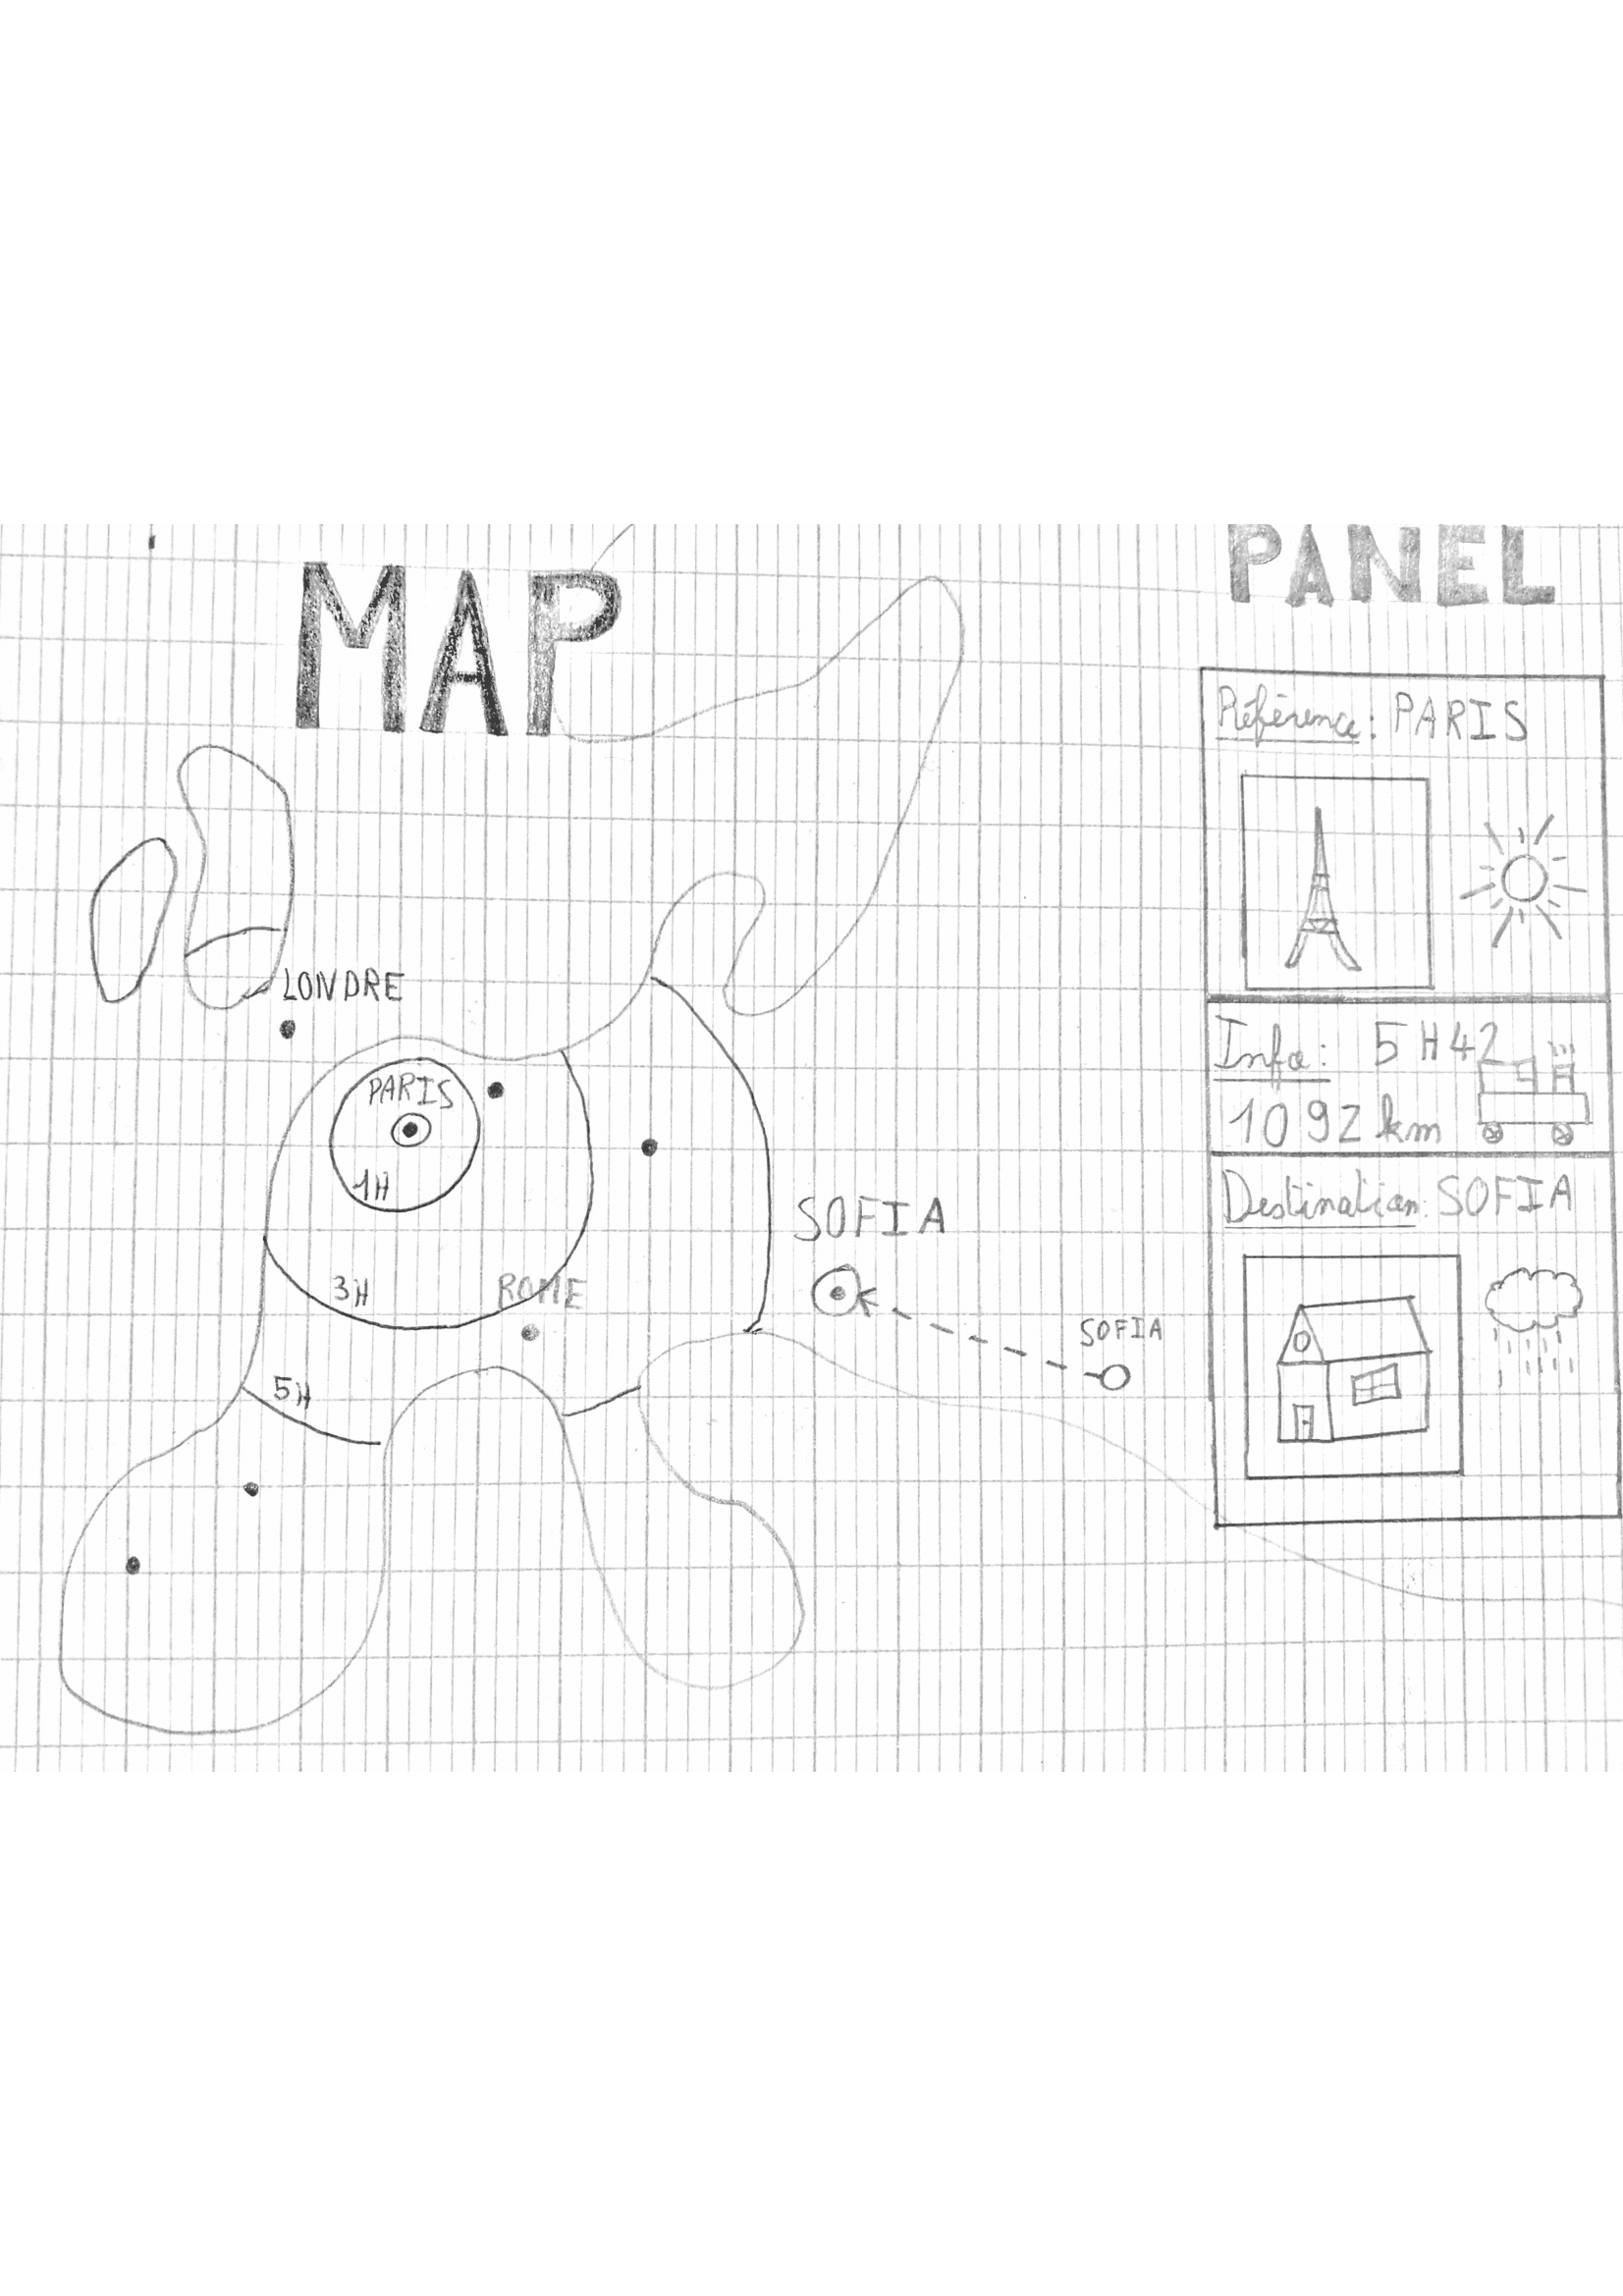 MAP
LONDRE
PARIS
1H
3H
ROME
5H
SOFIA
SOFIA
PANEL
Référence: PARIS
Info: 5H42
1092 km
Destination: SOFIA